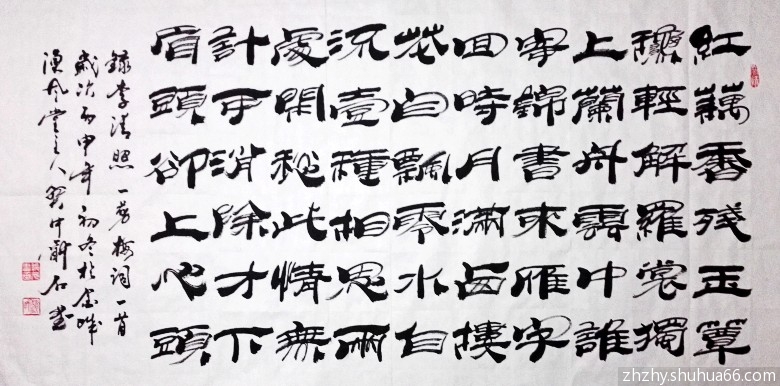 紅藕香殘玉簟
龝輕解羅裳獨
上蘭舟雲中誰
寄錦書來雁字
回時月滿西樓
花自飄零水自
流壹種相思兩
處閑愁此情無
計可消除才下
眉頭卻上心頭
錄李清照一剪梅詞一首
歲次丙申年初冬於金城
堂主人石書
zhzhy.shuhua66.com